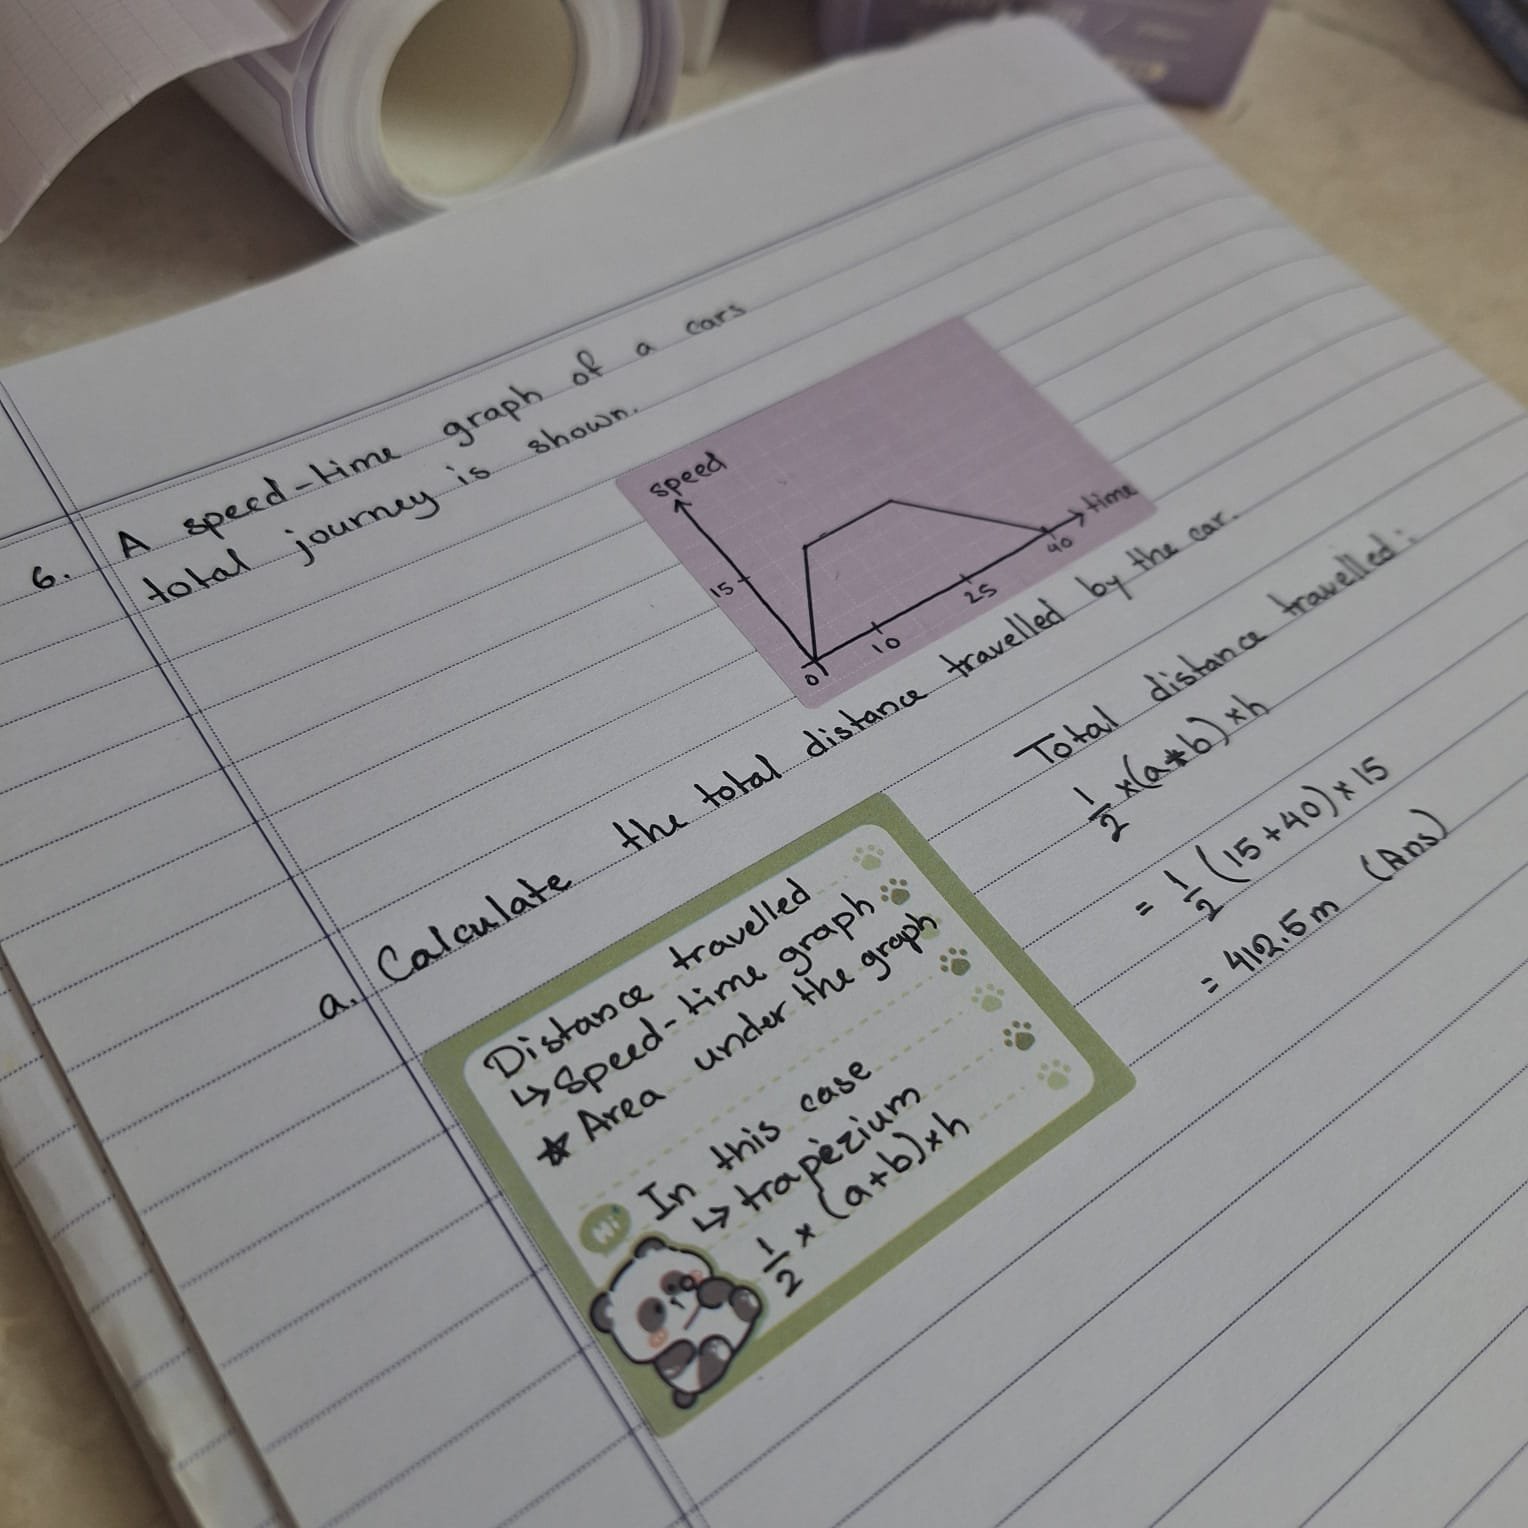 6. A speed-time graph of a cars
total journey is shown.
speed
15
0
10
25
40
time
a. Calculate the total distance travelled by the car.
Distance travelled
↳ Speed-time graph
☆ Area under the graph
In this case
↳ trapezium
1/2 × (a+b)×h
Hi
Total distance travelled:
1/2 ×(a+b)×h
= 1/2 (15+40)×15
= 412.5m (Ans)